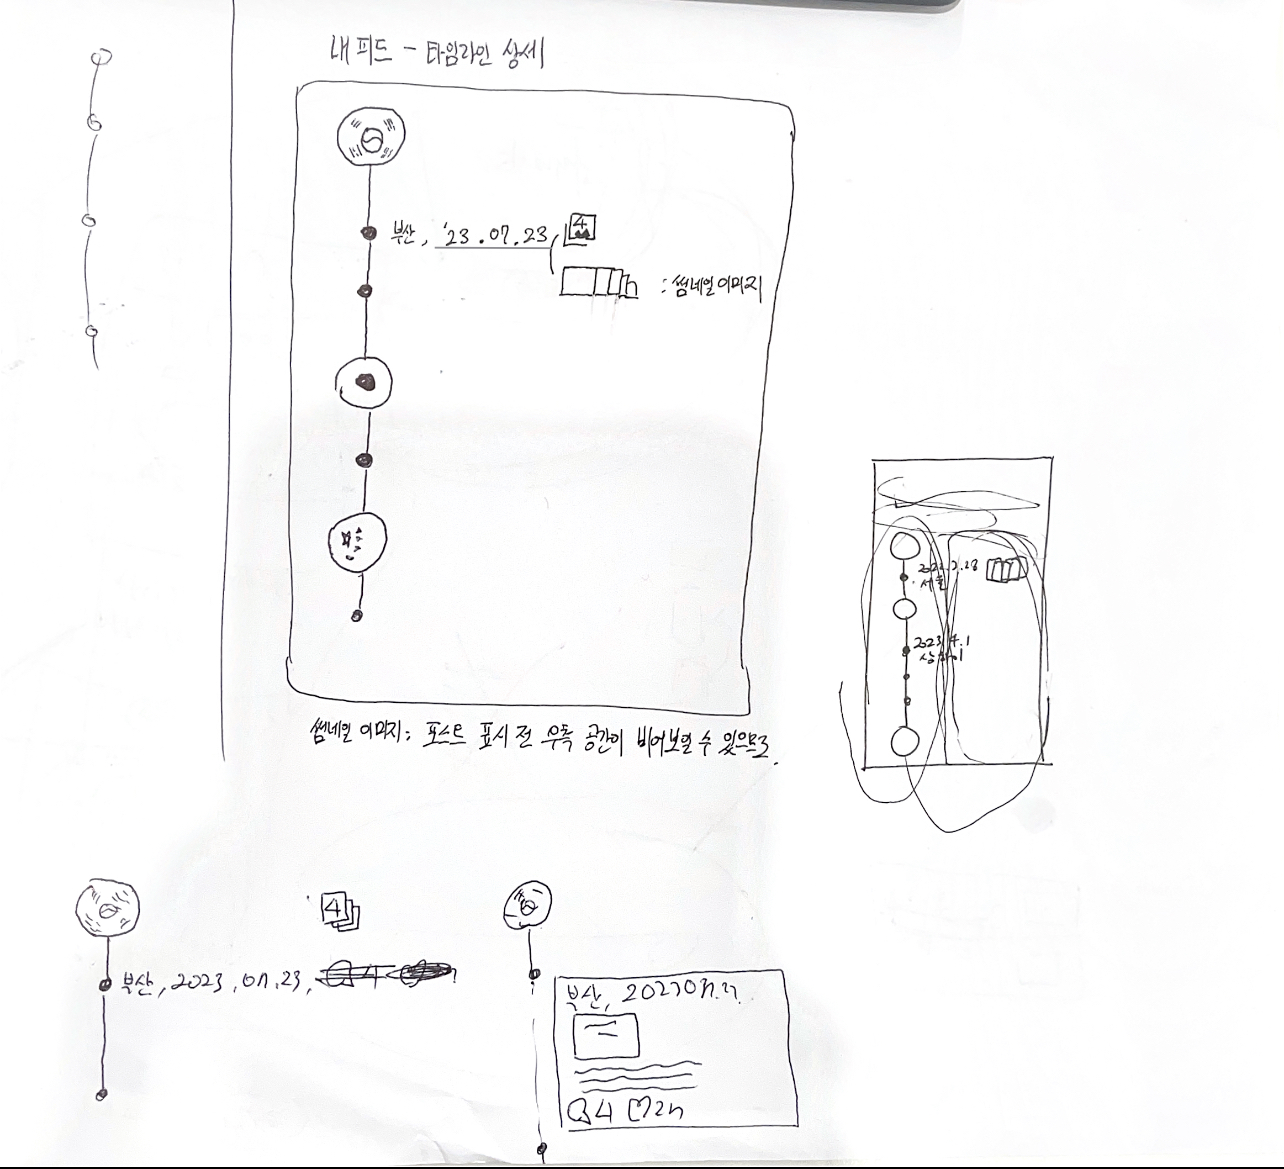 내 피드 - 타임라인 상세
부산, '23.07.23
4
: 썸네일 이미지
썸네일 이미지: 포스트 표시 전 우측 공간이 비어보일 수 있으므로.
서울
2023.4.1
상하이
4
부산, 2023.07.23,
부산, 2023
4